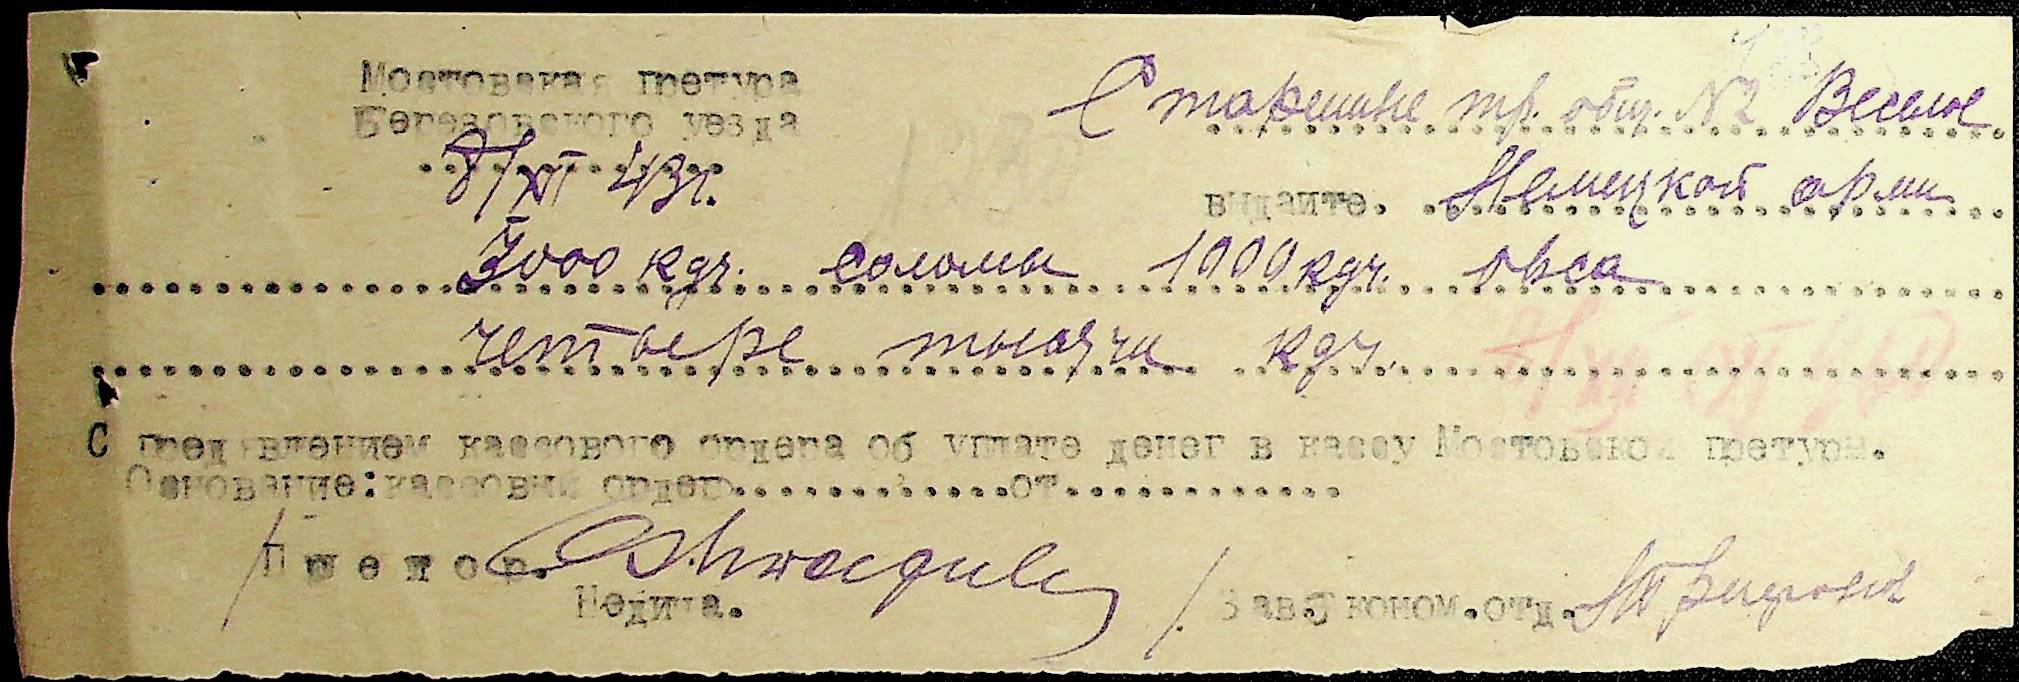 Мостовская претура
Березовского уезда
8/XII 43г.
Старешине тр. общ. №2 Веселое
выдайте. Немецкой арми
3000 кгч. соломы 1000 кгч. овса
четыре тысячи кгч.
С предявлением кассового ордера об уплате денег в кассу Мостовской претуры.
Основание: кассовый ордер............от............
Претор.
Недича.
Зав.Эконом.отд.